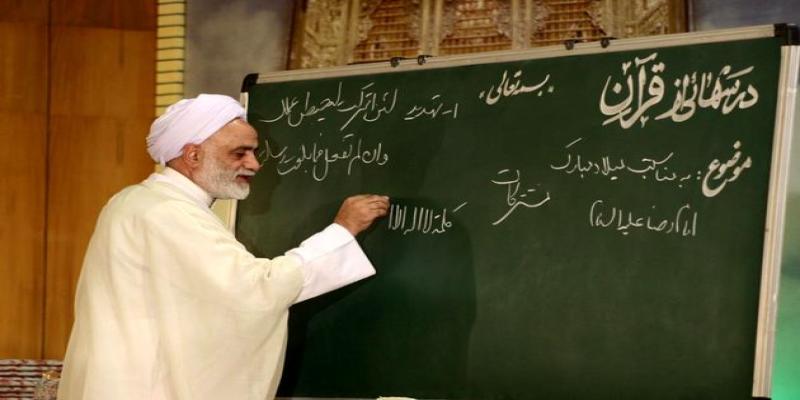 درسهائی از قرآن
بسمه تعالی
موضوع: به مناسبت میلاد مبارک
امام رضا علیه السلام
مشترکات
۱- تهدید لئن اشرکت لیحبطن عملک
وان لم تفعل فما بلغت رسالته
کلمة لا اله الا ا